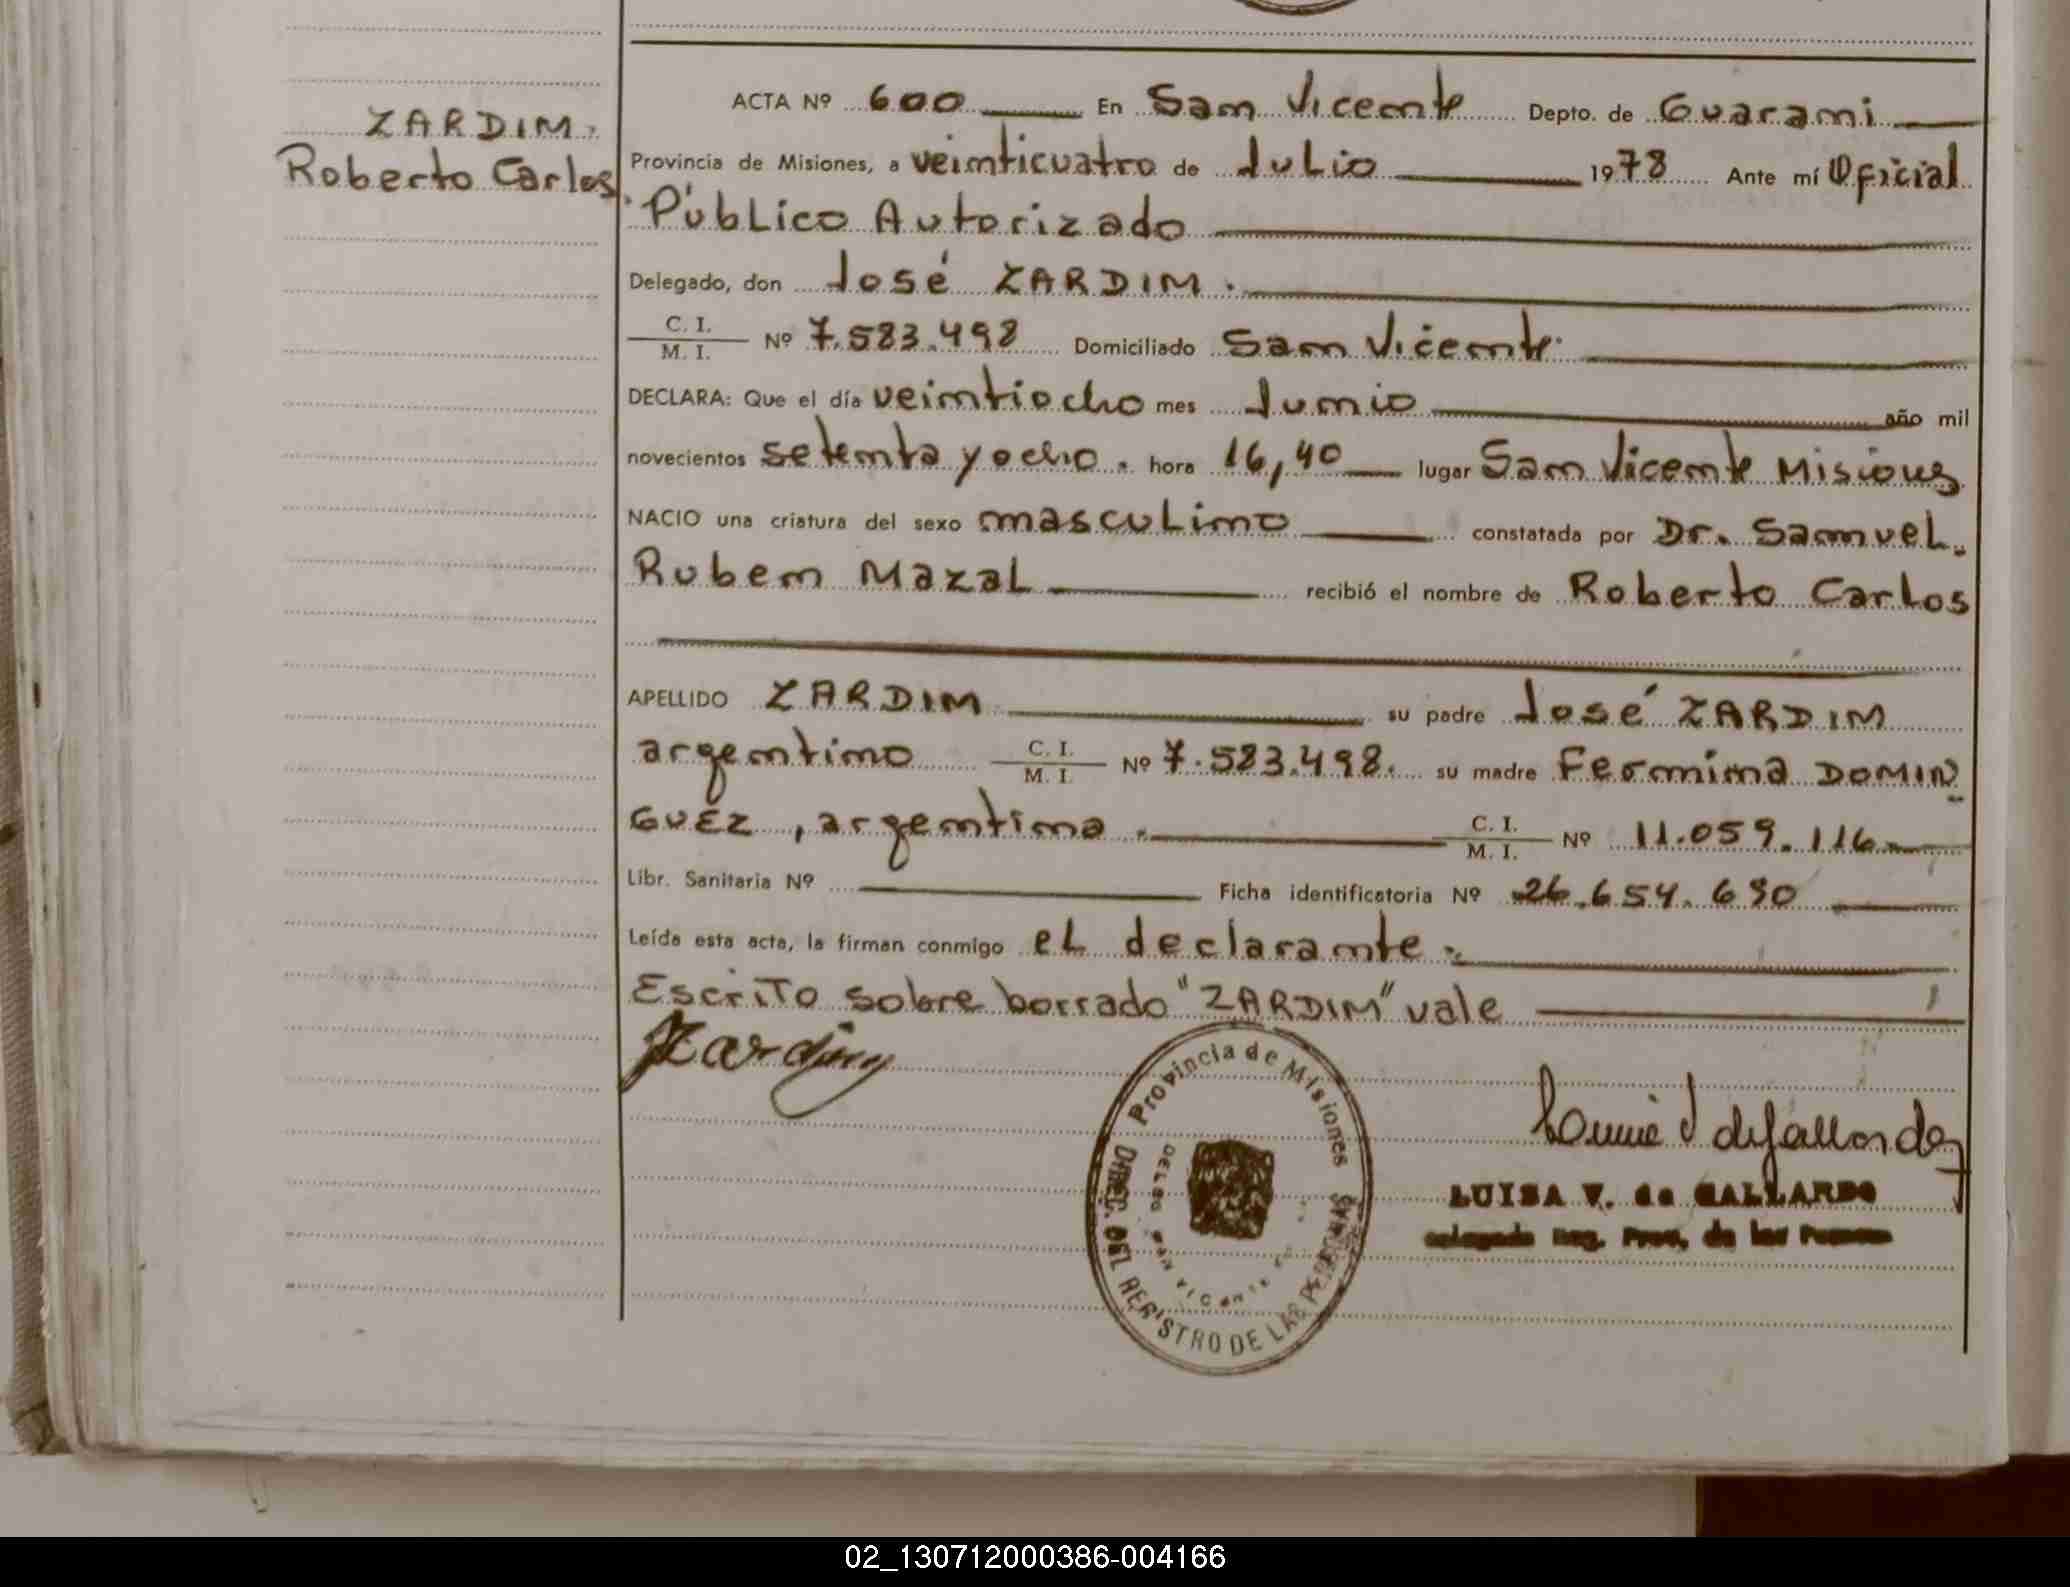 ZARDIM,
Roberto Carlos.
ACTA Nº 600 En San Vicente Depto. de Guarani
Provincia de Misiones, a veinticuatro de Julio 1978 Ante mí Oficial
Público Autorizado
Delegado, don José ZARDIM.
C. I.
M. I. Nº 7.583.498 Domiciliado San Vicente.
DECLARA: Que el día veintiocho mes Junio año mil
novecientos setenta y ocho. hora 16,40 lugar San Vicente Misiones
NACIO una criatura del sexo masculino constatada por Dr. Samuel
Ruben Mazal recibió el nombre de Roberto Carlos
APELLIDO ZARDIM su padre José ZARDIM
argentino C. I. M. I. Nº 7.583.498. su madre Fermina DOMIN
GUEZ, argentina. C. I. M. I. Nº 11.059.116
Libr. Sanitaria Nº Ficha identificatoria Nº 26.654.690
Leída esta acta, la firman conmigo el declarante.
Escrito sobre borrado "ZARDIM" vale
Zardim
Provincia de Misiones
DIREC. DEL REGISTRO DE LAS PERSONAS
SAN VICENTE
LUISA V. de GALLARDO
Reg. Prov. de las Personas
02_130712000386-004166